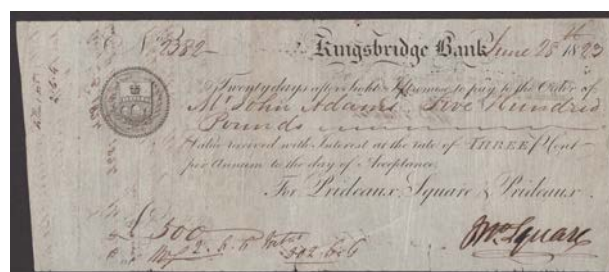 No. 2382 Kingsbridge Bank June 28th 1823
Twenty days after sight I promise to pay to the Order of
Mr John Adams Five Hundred
Pounds
Value received with Interest at the rate of THREE P Cent
per Annum to the day of Acceptance.
For Prideaux, Square & Prideaux
£500
2.6.6 502.6.6
Wm Square